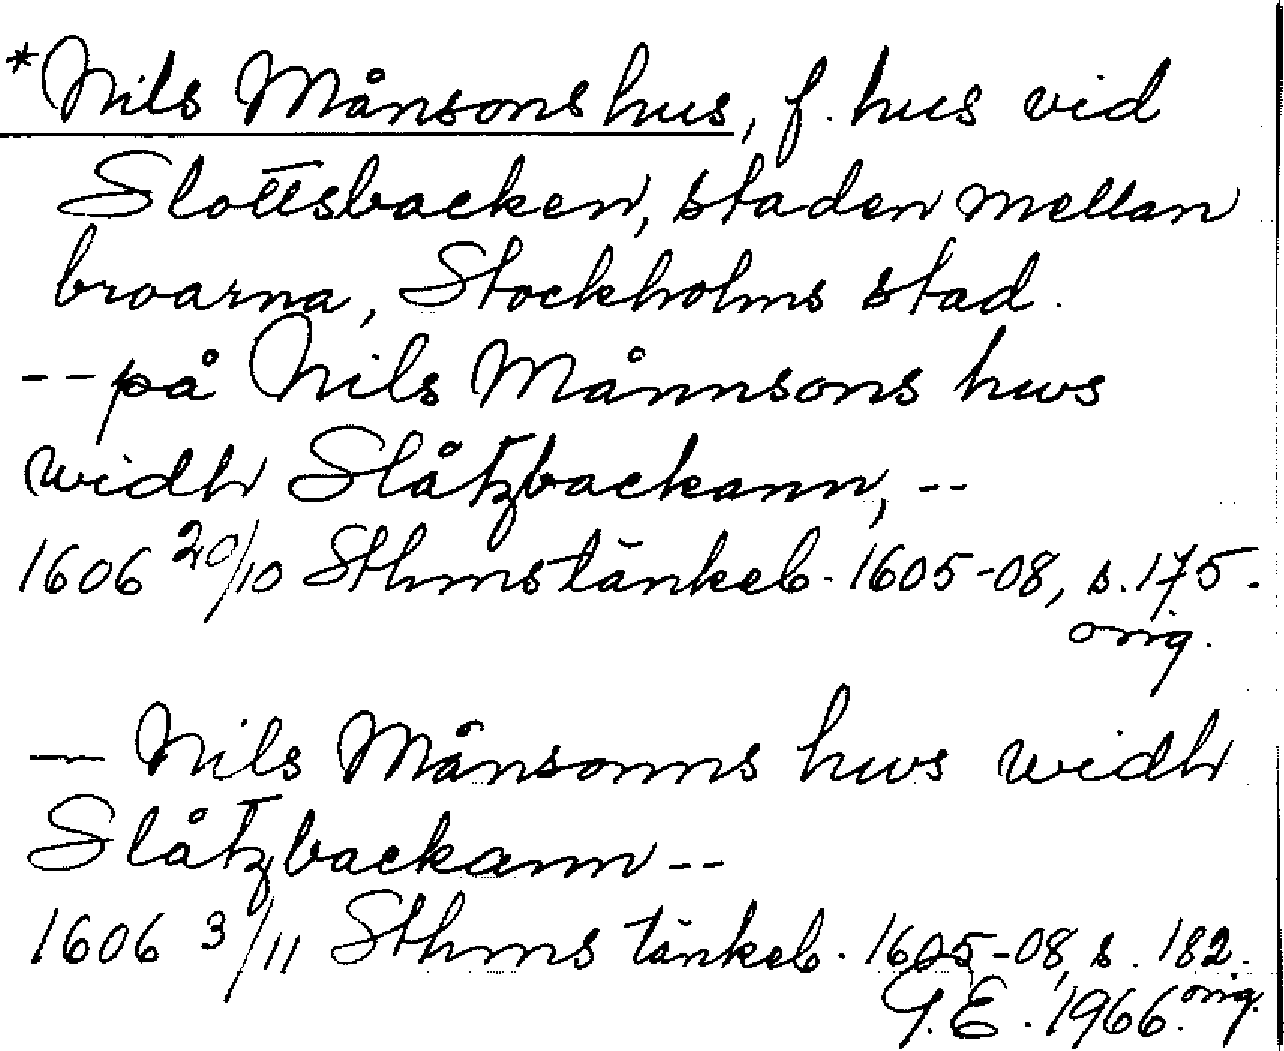 *Nils Månsons hus, f. hus vid
Slottsbacken, staden mellan
broarna, Stockholms stad.
-- på Nils Månnsons hws
widh Slåtzbackann, --
1606 20/10 Sthms tänkeb. 1605-08, s. 175.
orig.
— Nils Månsonns hws widh
Slåtzbackann --
1606 3/11 Sthms tänkeb. 1605-08, s. 182.
orig.
G.E. 1966.